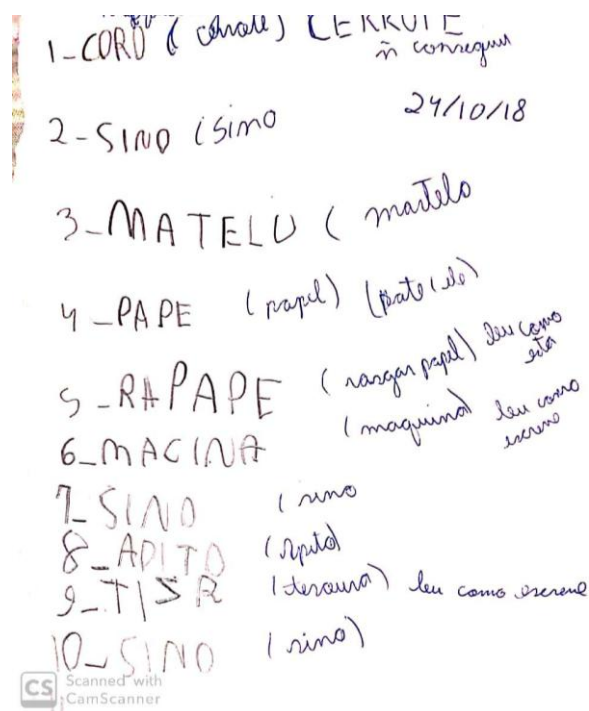 1-CORO (serrote) CERROTE
ñ conseguiu
24/10/18
2-SINO (sino
3-MATELU ( martelo
4-PAPE (papel)
5-RAPAPE (rasgar papel) leu como
está
6-MACINA (maquina) leu como
escreve
7-SINO ( sino
8-APITO (apito)
9-TISR (tesoura) leu como escreve
10-SINO (sino)
CS Scanned with
CamScanner